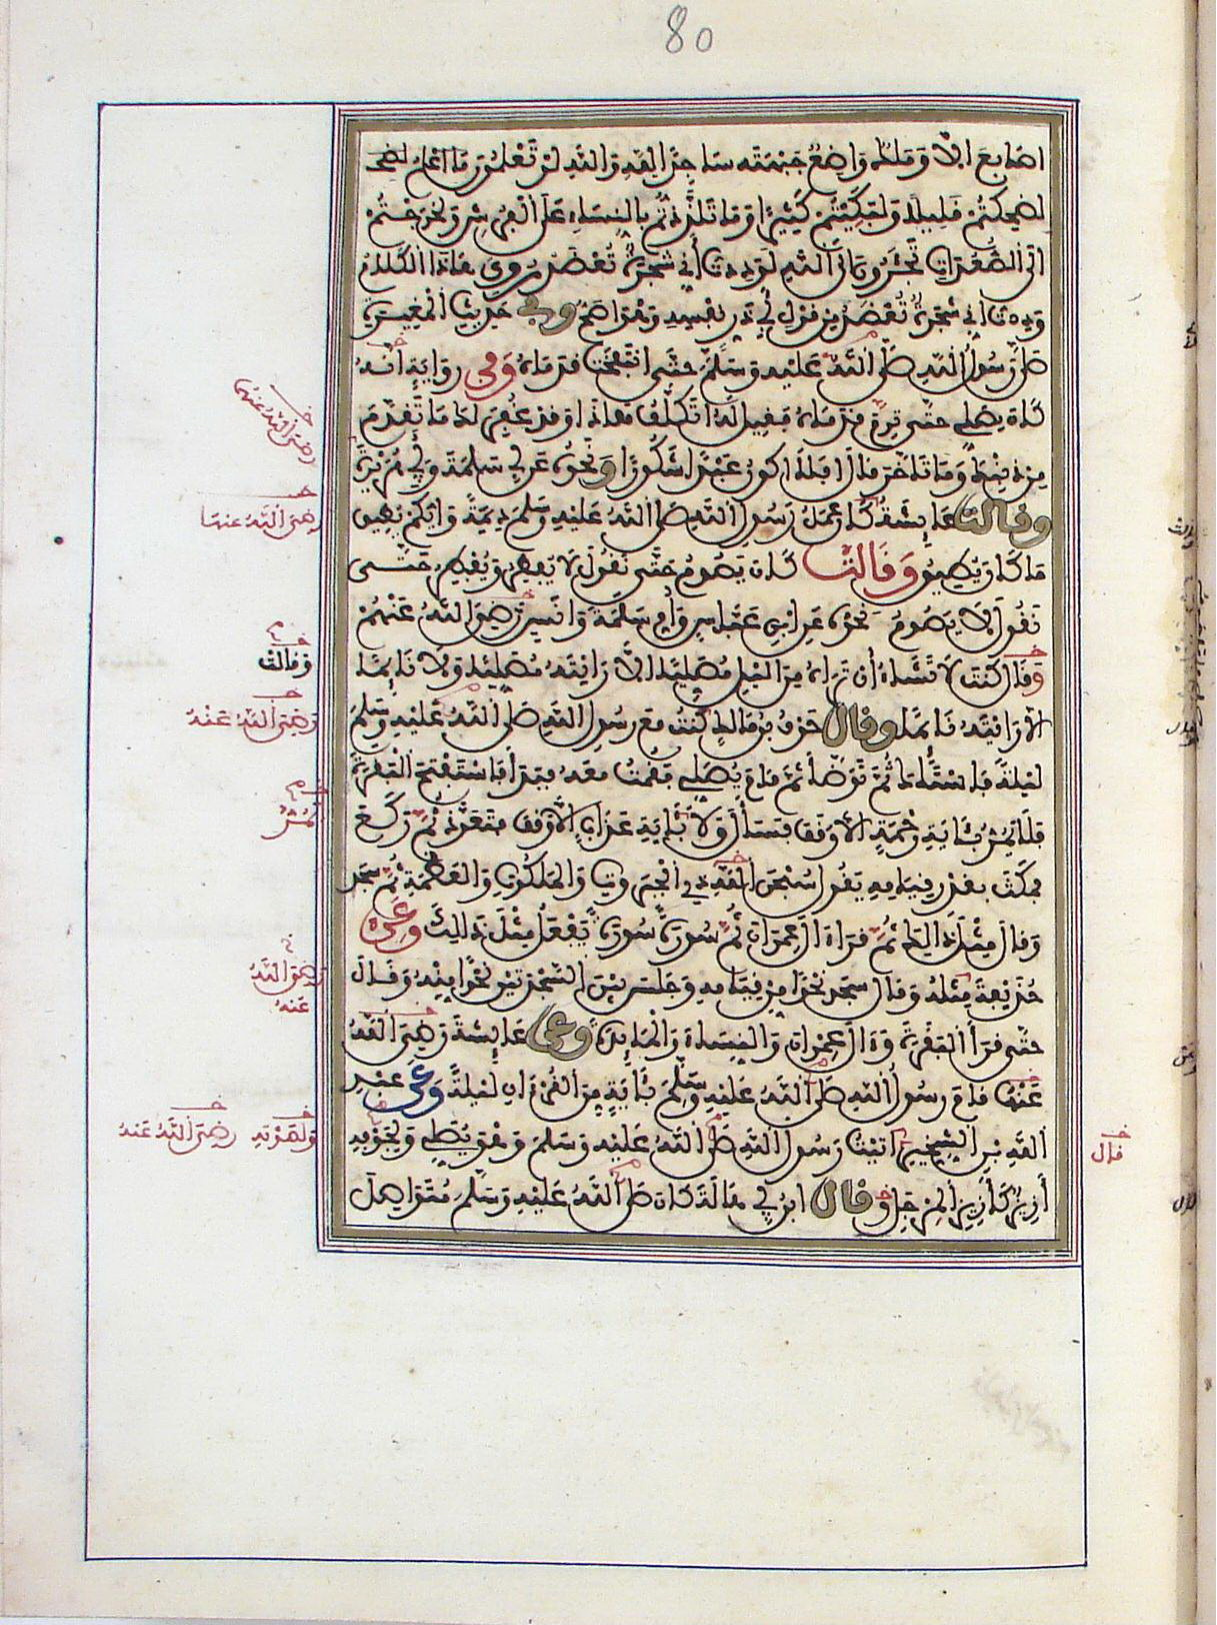 80
اصابع الا وملك واضع جبهته ساجدا لله والله لو تعلمون ما اعلم لضحـ
لضحكتم قليلا ولبكيتم كثيرا وما تلذذتم بالنساء على الفرش ولخرجتم
الى الصعدات تجئرون الى الله لوددت أني شجرة تعضد روي هاذا الكلام
وددت اني شجرة تعضد من قول أبي ذر نفسه وهو اصح وفي حديث المغيرة
صلى رسول الله صلى الله عليه وسلم حتى انتفخت قدماه وفي رواية انه
كان يصلي حتى ترم قدماه فقيل له اتكلف هاذا وقد غفر لك ما تقدم
من ذنبك وما تاخر قال افلا اكون عبدا شكورا ونحوه عن أبي سلمة وأبي هريرة
وقالت عايشة كان عمل رسول الله صلى الله عليه وسلم ديمة وايكم يطيق
ما كان يطيق وقالت كان يصوم حتى نقول لا يفطر ويفطر حتى
نقول لا يصوم نحوه عن ابن عباس وام سلمة وانس رضي الله عنهم
وقال كنت لا تشاء أن تراه من الليل مصليا الا رايته مصليا ولا نايما
الا رايته نايما وقال عوف بن مالك كنت مع رسول الله صلى الله عليه وسلم
ليلة فاستاك ثم توضأ ثم قام يصلي فقمت معه فبدأ فاستفتح البقرة
فلا يمر بئاية رحمة الا وقف فسأل ولا بئاية عذاب الا وقف فتعوذ ثم ركع
فمكث بقدر قيامه يقول سبحن الله ذي الجبروت والملكوت والعظمة ثم سجد
وقال مثل ذالك ثم قرأ ال عمران ثم سورة سورة يفعل مثل ذلك وعن
حذيفة مثله وقال سجد نحوا من قيامه وجلس بين السجدتين نحوا منه وقال
حتى قرأ البقرة وءال عمران والنساء والمايدة وعن عايشة رضي الله
عنها قام رسول الله صلى الله عليه وسلم بئاية من القرءان ليلة وعن عبد
الله بن الشخير اتيت رسول الله صلى الله عليه وسلم وهو يصلي ولجوفه
أزيز كأزيز المرجل وقال ابن أبي هالة كان صلى الله عليه وسلم متواصل
رضي الله عنهم
رضي الله عنها
وقالت
رضي الله عنه
يمر
رضي الله
عنه
ولصدره
رضي الله عنه
قال